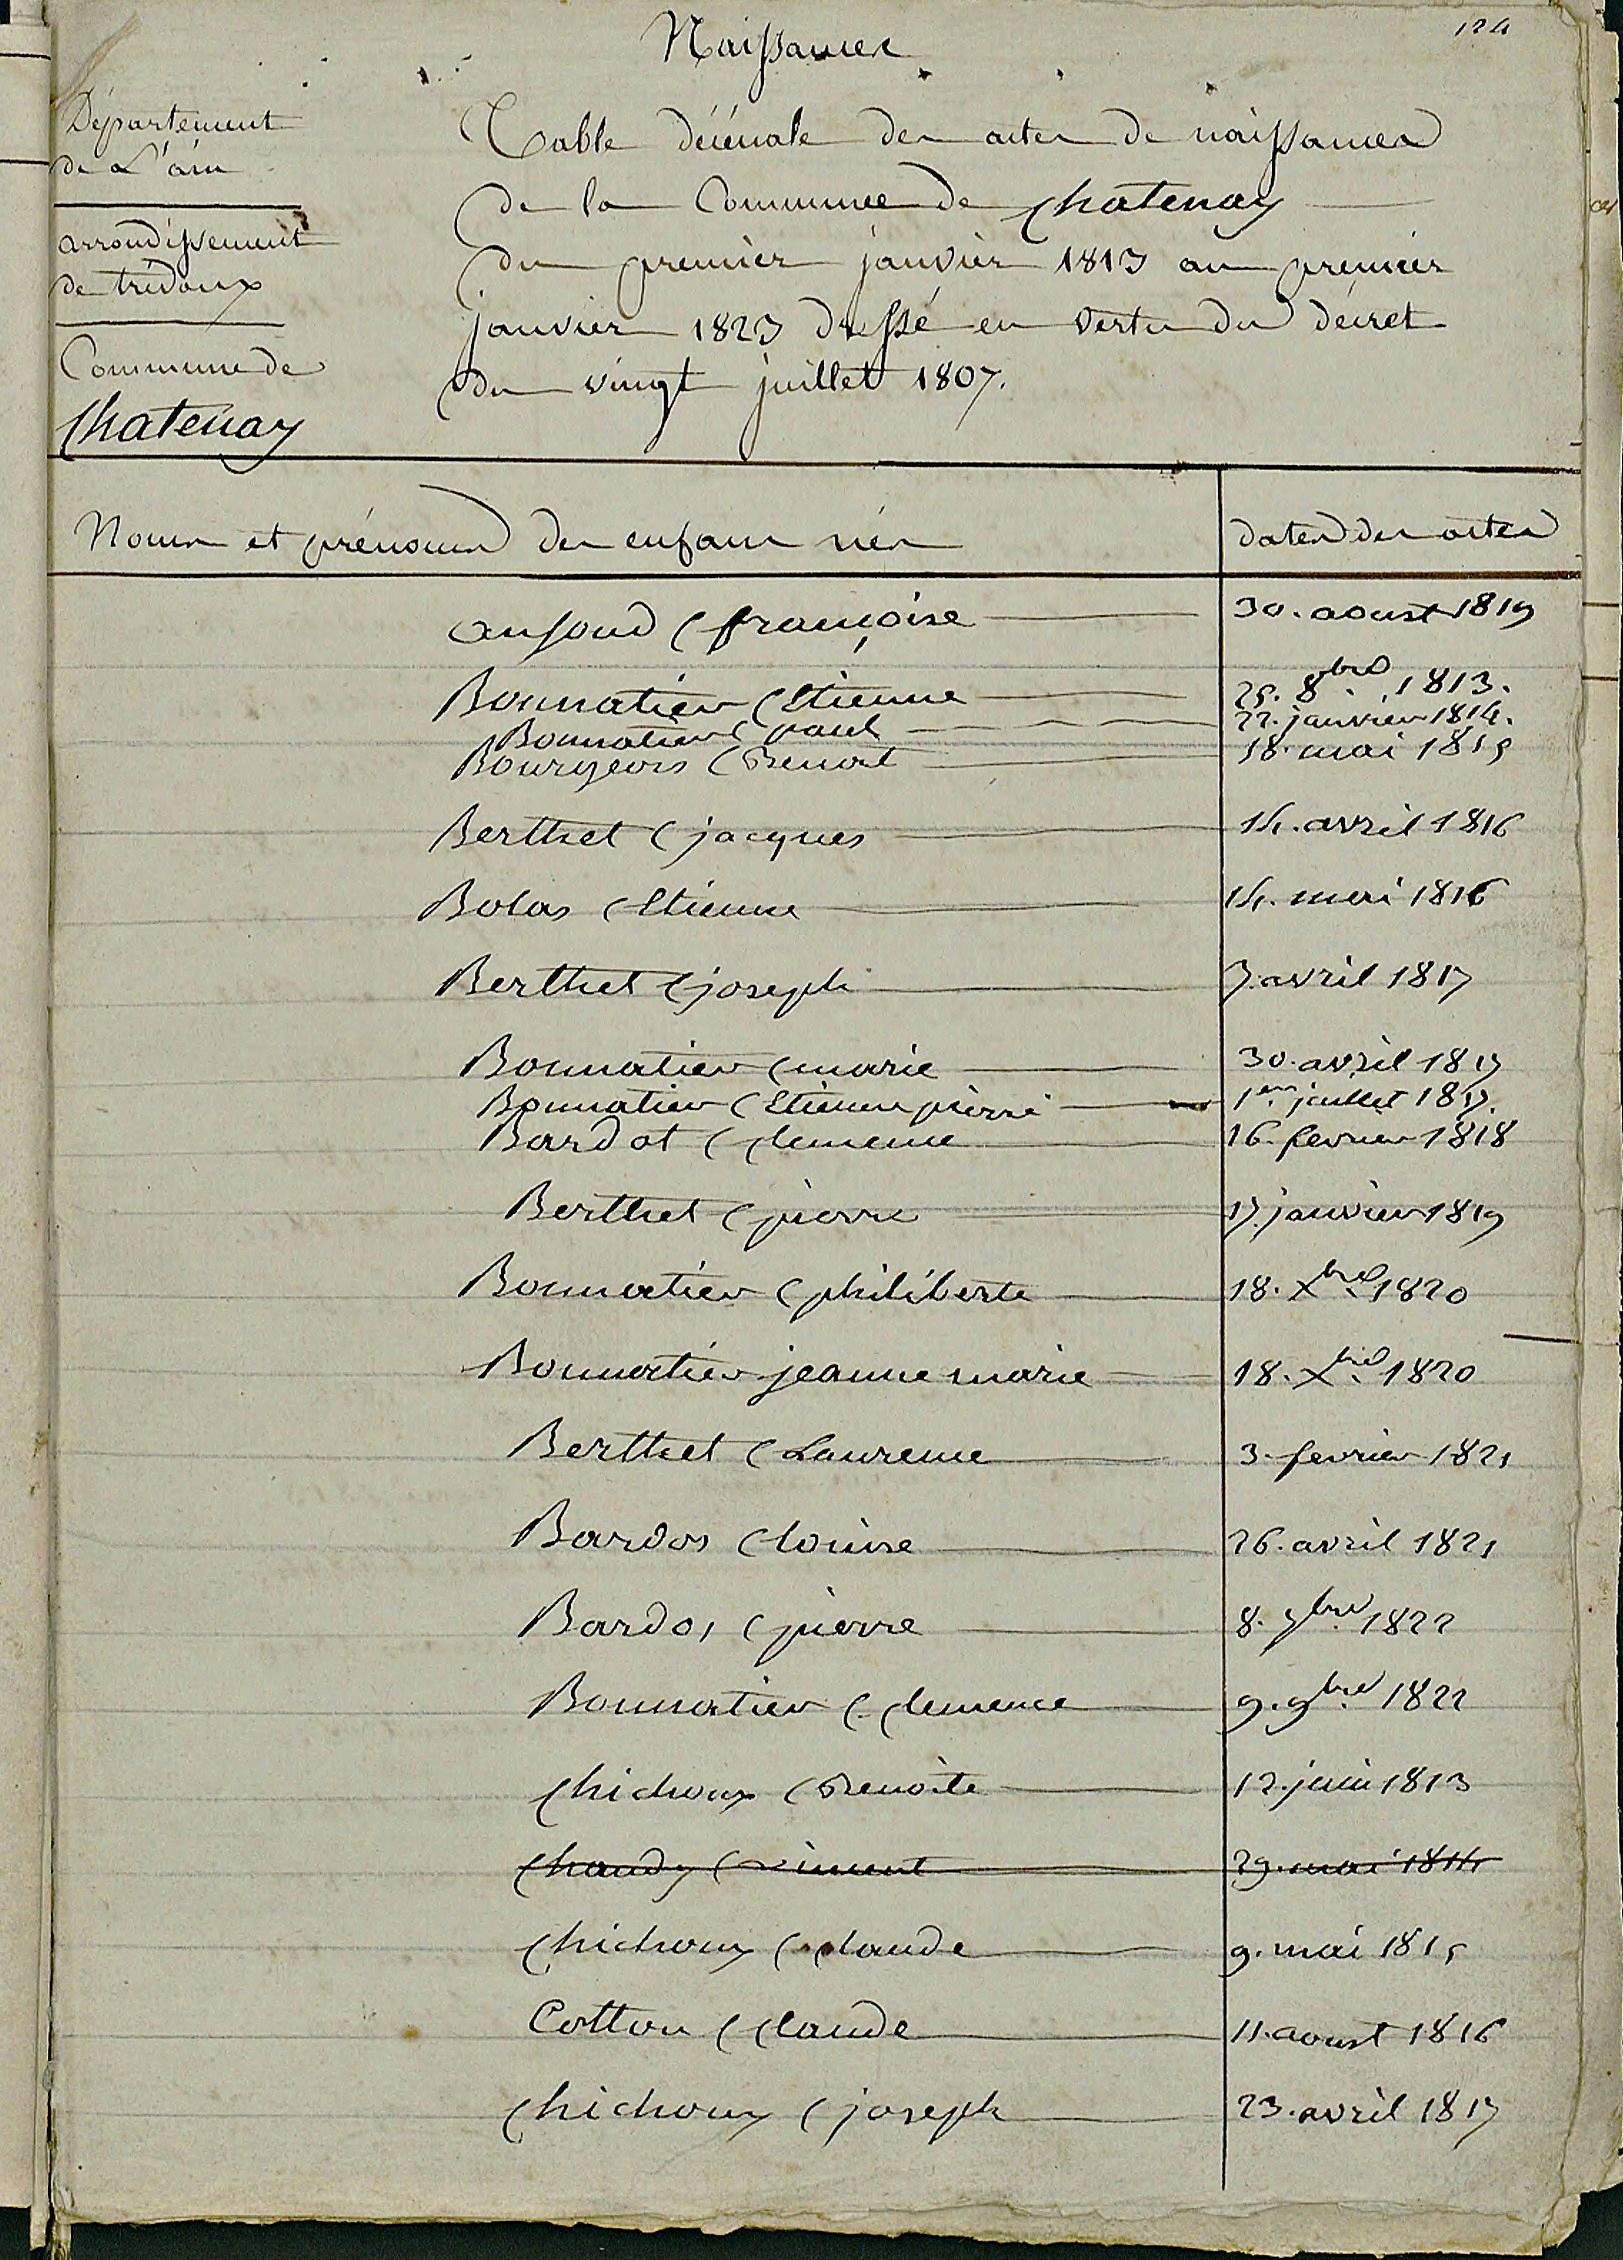 124
Naissances
Département
de L'ain
arrondissement
de trévoux
Commune de
Chatenay
Table décénale des actes de naissances
de la Commune de Chatenay
du premier janvier 1813 au premier
janvier 1823 dressé en vertu du décret
du vingt juillet 1807.
Noms et prénoms des enfans nés dates des actes
(françoise 30. aoust 1819
Bonnatier (Etienne 25. 8bre 1813.
Bonnatier (paul 22. janvier 1814.
Bourgeois (Benoit 18. mai 1815
Berthet (jacques 14. avril 1816
Bolas (Etienne 14. mai 1816
Berthet (joseph 7. avril 1817
Bonnatier (marie 30. avril 1817
Bonnatier (Etienne pierre 1er juillet 1817.
Bardot (clemence 16. fevrier 1818
Berthet (pierre 17. janvier 1819
Bonnatier (philiberte 18. Xbre 1820
Bonnatier jeanne marie 18. Xbre 1820
Berthet (Laurence 3. fevrier 1821
Bardos (louise 26. avril 1821
Bardos (pierre 8. 7bre 1822
Bonnatier (clemence 9. 9bre 1822
Chichoux (Benoite 12. juin 1813
Chandy (vincent 29. mai 1814
Chichoux (claude 9. mai 1815
Cotton (claude 11. aoust 1816
Chichoux (joseph 23. avril 1817